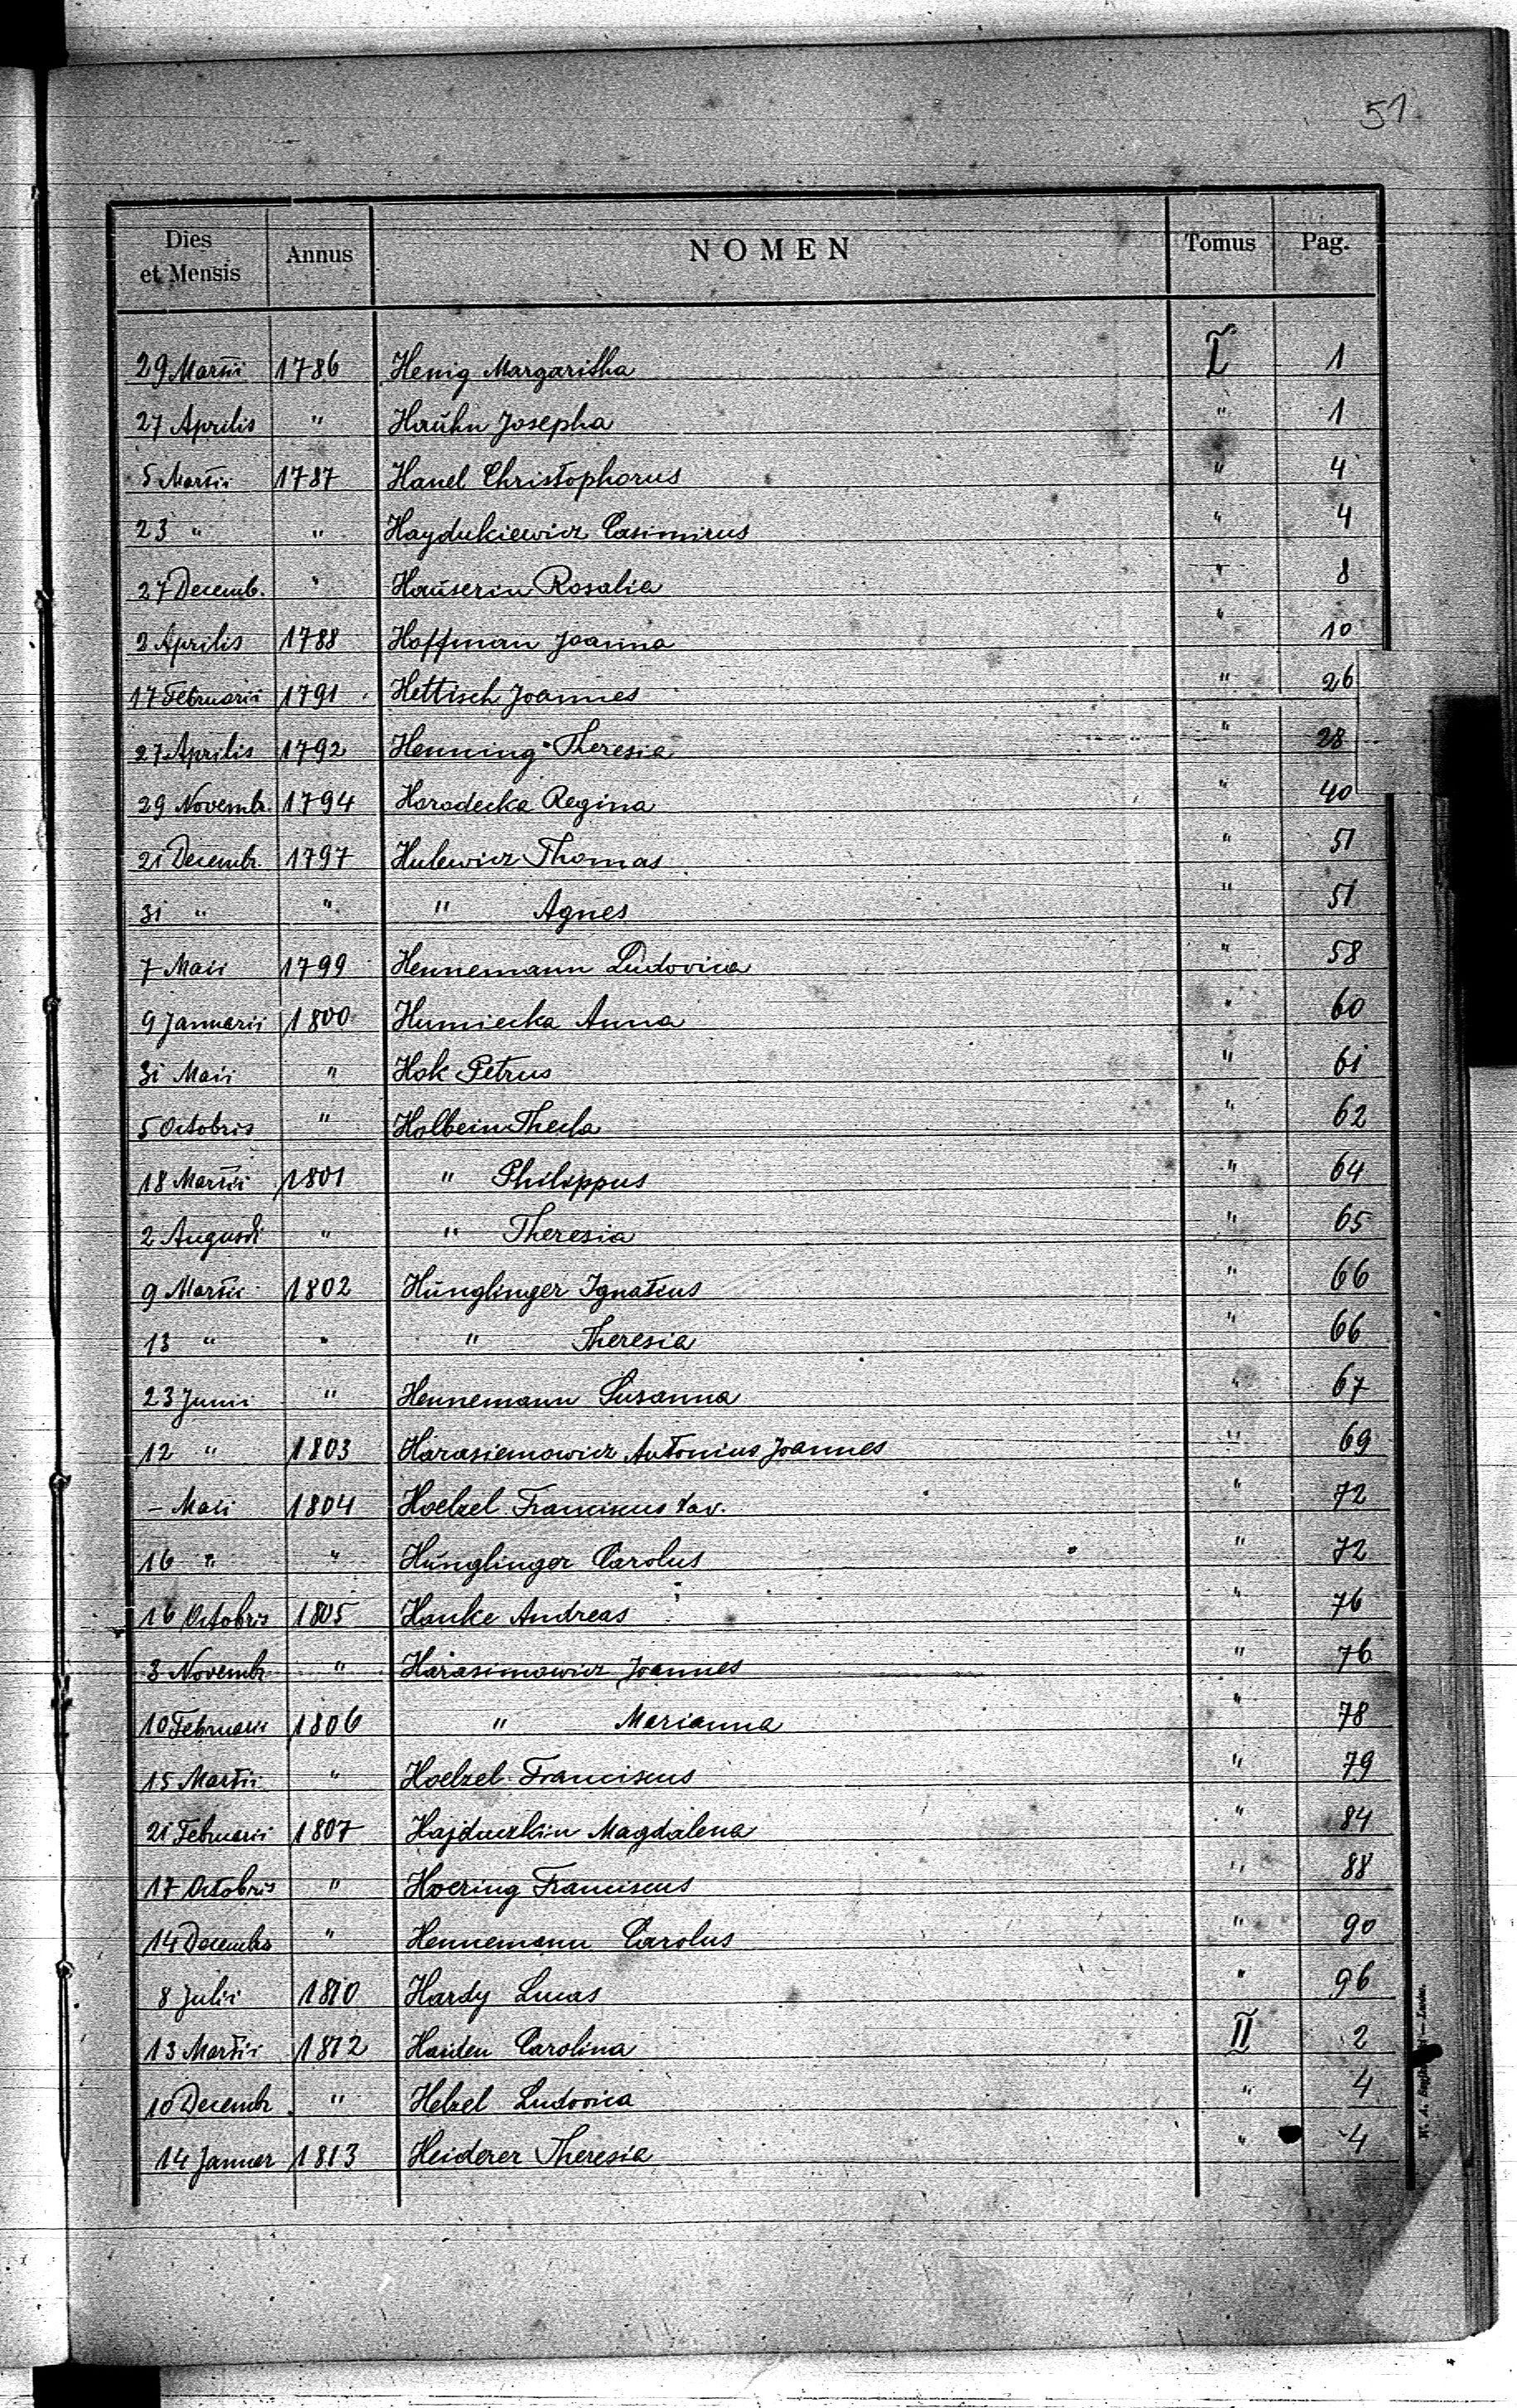 51
Dies et Mensis Annus NOMEN Tomus Pag.
29 Martii 1786 Henig Margaritha I 1
27 Aprilis " Haŭhn Josepha " 1
5 Martii 1787 Hanel Christophorus " 4
23 " " Haydukiewicz Casimirus " 4
27 Decemb. " Haŭserin Rosalia " 8
2 Aprilis 1788 Hoffman Joanna " 10
17 Februarii 1791 Hettisch Joannes " 26
27 Aprilis 1792 Henning Theresia " 28
29 Novembr. 1794 Horodecka Regina " 40
21 Decembr. 1797 Hulewicz Thomas " 51
31 " " " Agnes " 51
7 Maii 1799 Hennemann Ludovica " 58
9 Januarii 1800 Humiecka Anna " 60
31 Maii " Hok Petrus " 61
5 Octobris " Holbein Thecla " 62
18 Martii 1801 " Philippus " 64
2 Augusti " " Theresia " 65
9 Martii 1802 Hŭnglinger Ignatius " 66
13 " " " Theresia " 66
23 Junii " Hennemann Susanna " 67
12 " 1803 Harasiemowicz Antonius Joannes " 69
- Maii 1804 Hoelzel Franciscus Xav. " 72
16 " " Hŭnglinger Carolus " 72
16 Octobris 1805 Hanke Andreas " 76
3 Novembr. " Harasimowicz Joannes " 76
10 Februarii 1806 " Marianna " 78
15 Martii " Hoelzel Franciscus " 79
21 Februarii 1807 Hajduczkin Magdalena " 84
17 Octobris " Hoering Franciscus " 88
14 Decembr " Hennemann Carolus " 90
8 Julii 1810 Hardy Lucas " 96
13 Martii 1812 Haiden Carolina II 2
10 Decembr " Helzel Ludovica " 4
14 Januar 1813 Heiderer Theresia " 4